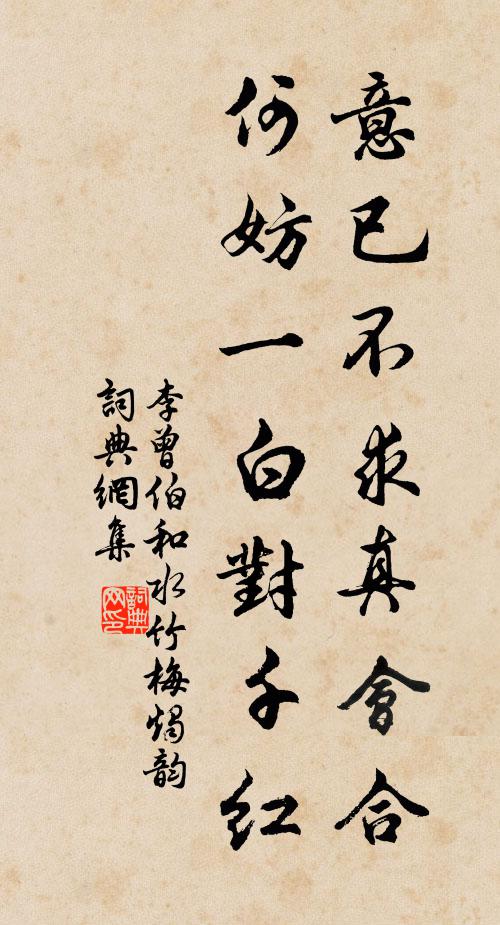 意已不求真會合
何妨一白對千紅
李曾伯和水竹梅燭韵
詞典網集
詞典
网印